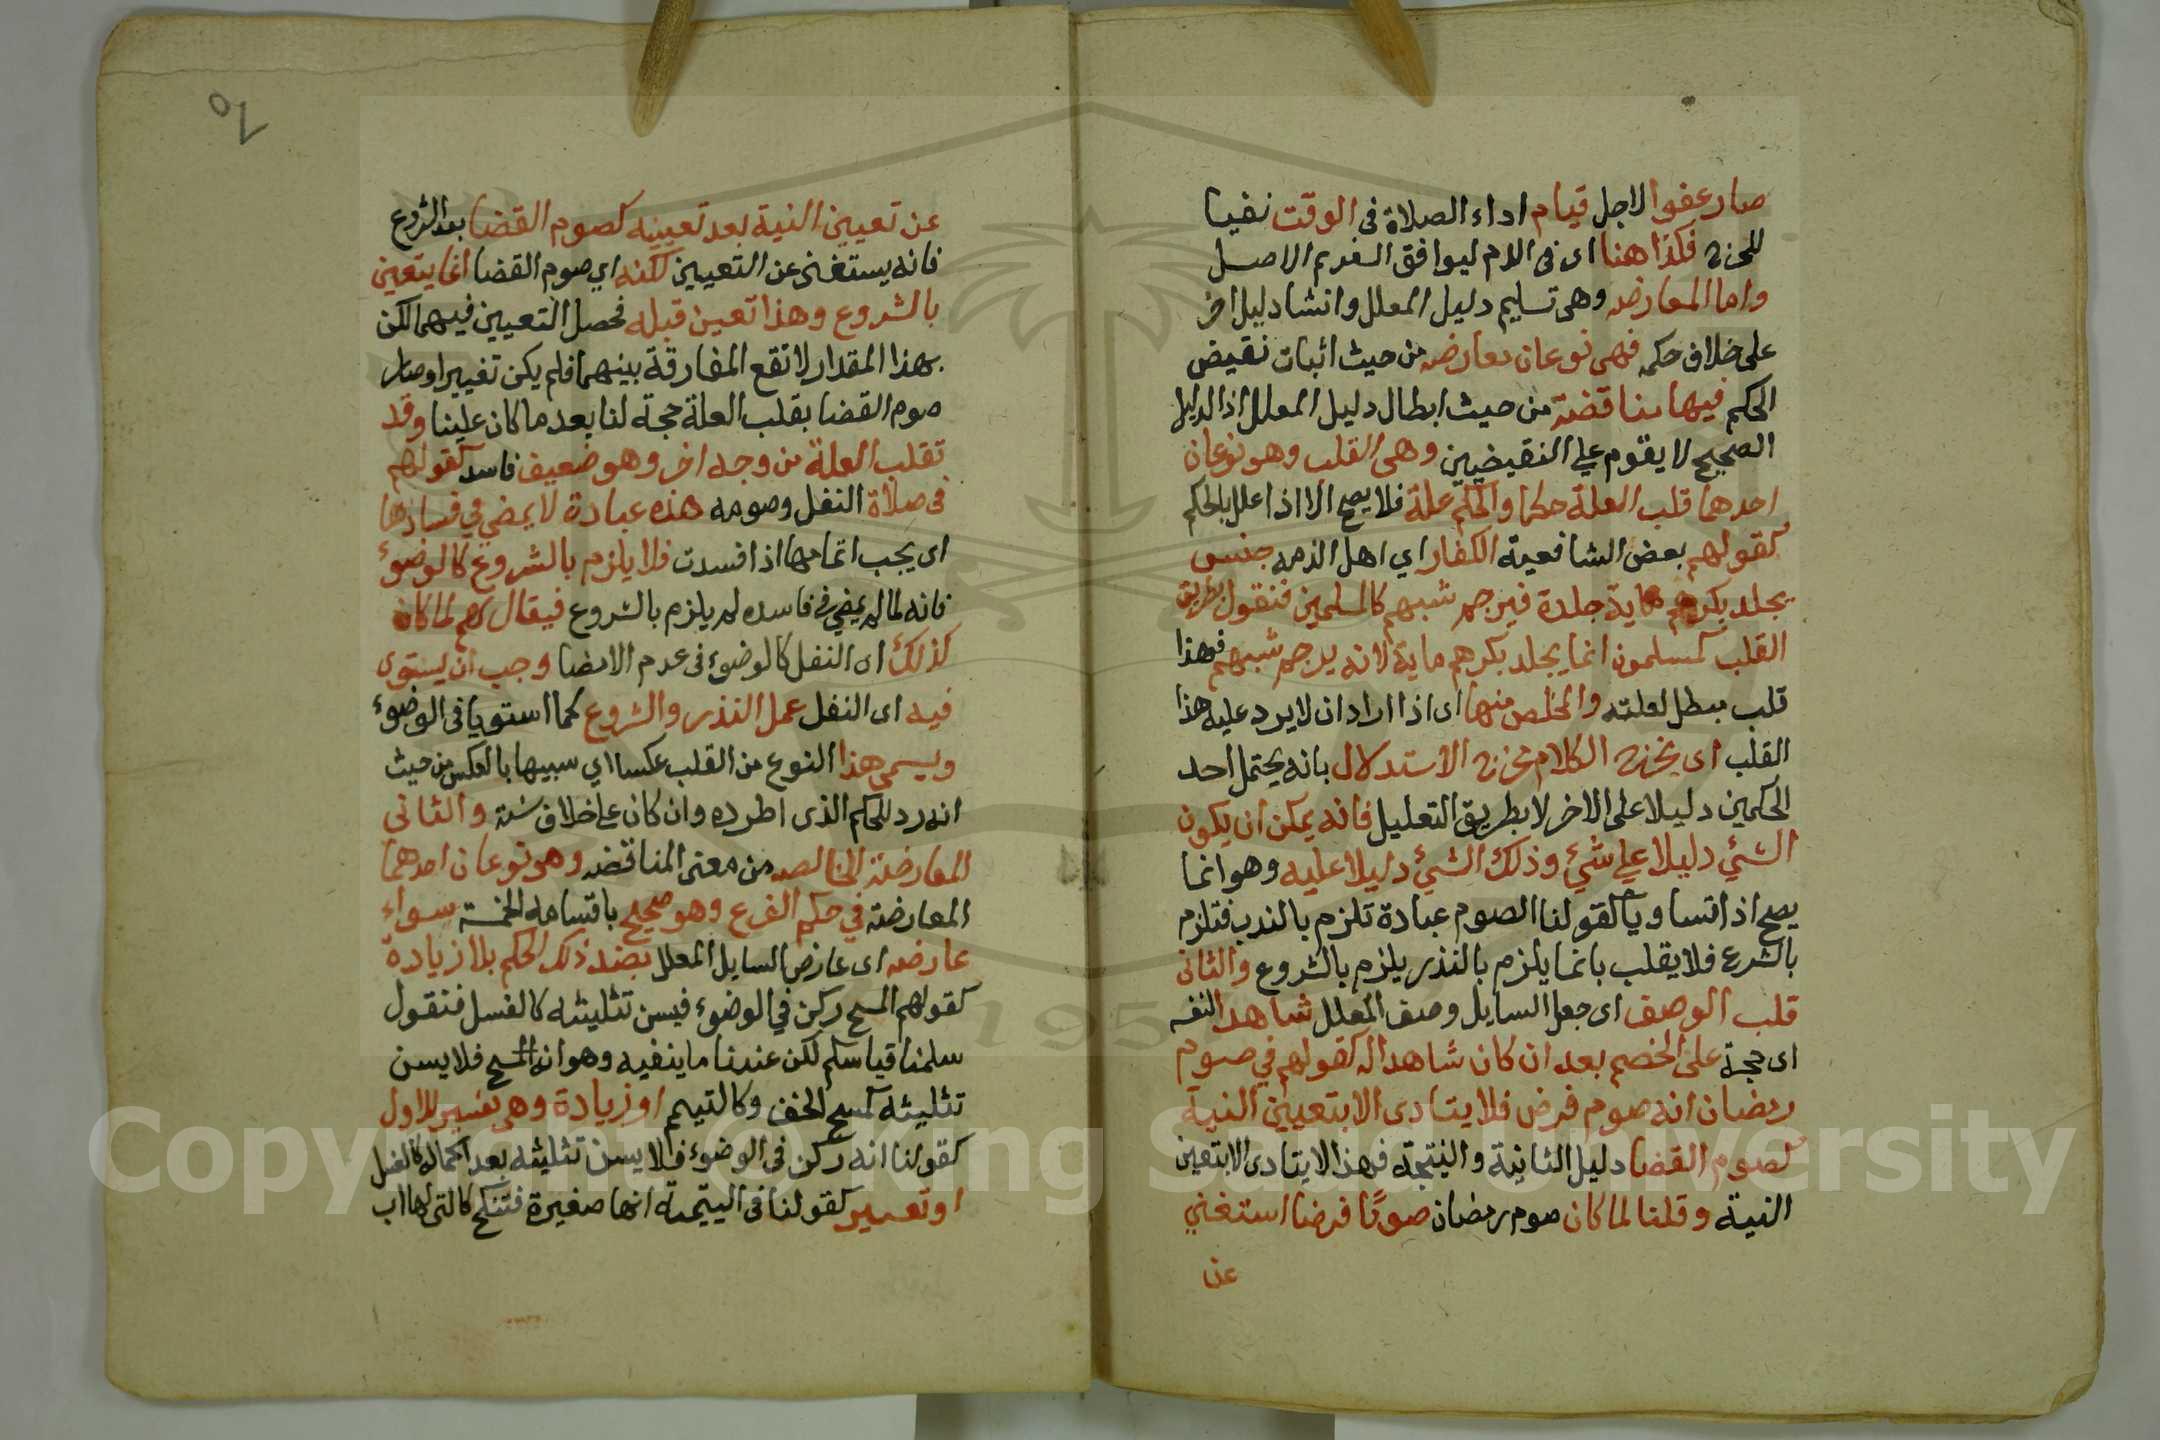 صار عفوا لاجل قيام اداء الصلاة فى الوقت نفيا
للحرج فكذا هنا اى فى الدم ليوافق الفرع الاصل
واما المعارضه وهى تسليم دليل المعلل وانشا دليل اخر
على خلاف حكمه فهى نوعان معارضه من حيث اثبات نقيض
الحكم فيها مناقضة من حيث ابطال دليل المعلل اذ الدليل
الصحيح لا يقوم علي النقيضين وهى القلب وهو نوعان
احدهما قلب العلة حكما والحكم علة فلا يصح الا اذا علل بالحكم
كقولهم بعض الشافعية الكفار اي اهل الذمه جنس
يجلد بكرهم ماية جلدة فيرجم ثيبهم كالمسلمين فنقول بطريق
القلب المسلمون انما يجلد بكرهم ماية لانه يرجم ثيبهم فهذا
قلب مبطل لعلته والمخلص منها اى اذا اراد ان لا يرد عليه هذا
القلب اى يخرج الكلام مخرج الاستدلال بانه يحتمل احد
الحكمين دليلا على الاخر لا بطريق التعليل فانه يمكن ان يكون
الشئ دليلا علي شئ وذلك الشئ دليلا عليه وهو انما
يصح اذا تساويا كقولنا الصوم عبادة تلزم بالندر فتلزم
بالشرع فلا يقلب بانما يلزم بالنذر يلزم بالشروع والثانى
قلب الوصف اى جعل السايل وصف المعلل شاهدا لنفسه
اى حجة على الخصم بعد ان كان شاهدا له كقولهم في صوم
رمضان انه صوم فرض فلا يتادى الا بتعيين النية
كصوم القضا دليل الثانية والنتيجة فهذا لا يتادى الا بتعين
النية وقلنا لما كان صوم رمضان صومًا فرضا استغني
عن
عن تعيين النية بعد تعيينه كصوم القضا بعد الشروع
فانه يستغنى عن التعيين لكنه اي صوم القضا انما يتعين
بالشروع وهذا تعين قبله فحصل التعيين فيهما لكن
بهذا المقدار لا تقع المفارقة بينهما فلم يكن تغييرا وصار
صوم القضا بقلب العلة حجة لنا بعد ما كان علينا وقد
تقلب العلة من وجه اخر وهو ضعيف فاسد كقولهم
فى صلاة النفل وصومه هذه عبادة لا يمضي في فسادها
اى يجب اتمامها اذا فسدت فلا يلزم بالشروع كالوضوء
فانه لما لم يمضي فى فاسده لم يلزم بالشروع فيقال لهم لما كان
كذلك اى النفل كالوضوء فى عدم الامضا وجب ان يستوى
فيه اى النفل عمل النذر والشروع كما استويا فى الوضوء
ويسمى هذا النوع من القلب عكسا اي سبيها بالعكس من حيث
انه رد للحكم الذى اطرده وان كان على خلاف سننه والثانى
المعارضة الخالصه من معنى المناقضه وهو نوعان احدهما
المعارضة في حكم الفرع وهو صحيح باقسامه الخمسة سواء
عارضه اى عارض السايل المعلل بضد ذلك الحكم بلا زيادة
كقولهم المسح ركن في الوضوء فيسن تثليثه كالغسل فنقول
سلمنا قياسكم لكن عندنا ما ينفيه وهو انه المسح فلا يسن
تثليثه كمسح الخف وكالتيمم او زيادة وهى تفسير للاول
كقولنا انه ركن فى الوضوء فلا يسن تثليثه بعد اكماله كالغسل
او تغيير كقولنا فى اليتيمة انها صغيرة فتنكح كالتى لها اب